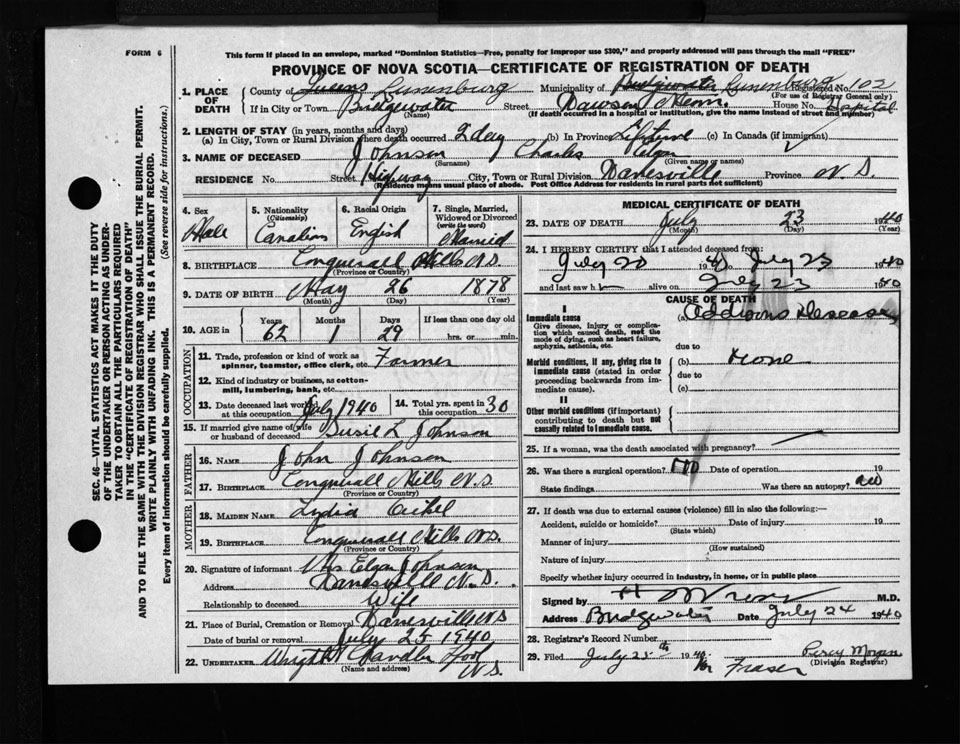 FORM 6
This form if placed in an envelope, marked "Dominion Statistics—Free, penalty for improper use $300," and properly addressed will pass through the mail "FREE"
PROVINCE OF NOVA SCOTIA—CERTIFICATE OF REGISTRATION OF DEATH
SEC. 46—VITAL STATISTICS ACT MAKES IT THE DUTY
OF THE UNDERTAKER OR PERSON ACTING AS UNDER-
TAKER TO OBTAIN ALL THE PARTICULARS REQUIRED
IN THE "CERTIFICATE OF REGISTRATION OF DEATH"
AND TO FILE THE SAME WITH THE DIVISION REGISTRAR WHO SHALL ISSUE THE BURIAL PERMIT.
WRITE PLAINLY WITH UNFADING INK. THIS IS A PERMANENT RECORD.
Every item of information should be carefully supplied. (See reverse side for instructions.)
1. PLACE OF DEATH County of Queens Lunenburg Municipality of Bridgewater Lunenburg Registered No. 102
(For use of Registrar General only)
If in City or Town Bridgewater Street Dawson Mem. House No. Hospital
(Name) (If death occurred in a hospital or institution, give name instead of street and number)
2. LENGTH OF STAY (in years, months and days)
(a) In City, Town or Rural Division where death occurred 2 day (b) In Province Lifetime (c) In Canada (if immigrant)
3. NAME OF DECEASED Johnson Charles Elgan
(Surname) (Given name or names)
RESIDENCE No. Street Higway City, Town or Rural Division Danesville Province N.S.
(Residence means usual place of abode. Post Office Address for residents in rural parts not sufficient)
4. Sex Male
5. Nationality (Citizenship) Canadian
6. Racial Origin English
7. Single, Married, Widowed or Divorced (write the word) Married
8. BIRTHPLACE Conquerall Mills N.S
(Province or Country)
9. DATE OF BIRTH May 26 1878
(Month) (Day) (Year)
10. AGE in Years 62 Months 1 Days 29 If less than one day old hrs. or min.
OCCUPATION
11. Trade, profession or kind of work as spinner, teamster, office clerk, etc. Farmer
12. Kind of industry or business, as cotton-mill, lumbering, bank, etc.
13. Date deceased last worked at this occupation July 1940
14. Total yrs. spent in this occupation 30
15. If married give name of wife or husband of deceased Susie L Johnson
FATHER
16. NAME John Johnson
17. BIRTHPLACE Conquerall Mills N.S
(Province or Country)
MOTHER
18. MAIDEN NAME Lydia
19. BIRTHPLACE Conquerall Mills N.S.
(Province or Country)
20. Signature of informant Mrs Elgan Johnson
Address Danesville N.S.
Relationship to deceased Wife
21. Place of Burial, Cremation or Removal Danesville N.S
Date of burial or removal July 25 1940
22. UNDERTAKER Wright Chandler
(Name and address) N.S.
MEDICAL CERTIFICATE OF DEATH
23. DATE OF DEATH July 23 1940
(Month) (Day) (Year)
24. I HEREBY CERTIFY that I attended deceased from:
July 20 1940 July 23 1940
and last saw h alive on July 23 1940
CAUSE OF DEATH
I
Immediate cause (a) Addisons Disease
Give disease, injury or complication which caused death, not the mode of dying, such as heart failure, asphyxia, asthenia, etc.
due to
Morbid conditions, if any, giving rise to immediate cause (stated in order proceeding backwards from immediate cause). (b) None
due to
(c)
II
Other morbid conditions (if important) contributing to death but not causally related to immediate cause.
25. If a woman, was the death associated with pregnancy?
26. Was there a surgical operation? No Date of operation 19
State findings Was there an autopsy? no
27. If death was due to external causes (violence) fill in also the following:—
Accident, suicide or homicide? Date of injury 19
(State which)
Manner of injury
(How sustained)
Nature of injury
Specify whether injury occurred in industry, in home, or in public place
Signed by M.D.
Address Bridgewater Date July 24 1940
28. Registrar's Record Number
29. Filed July 25th 1940 Percy Morgan
Per Fraser (Division Registrar)